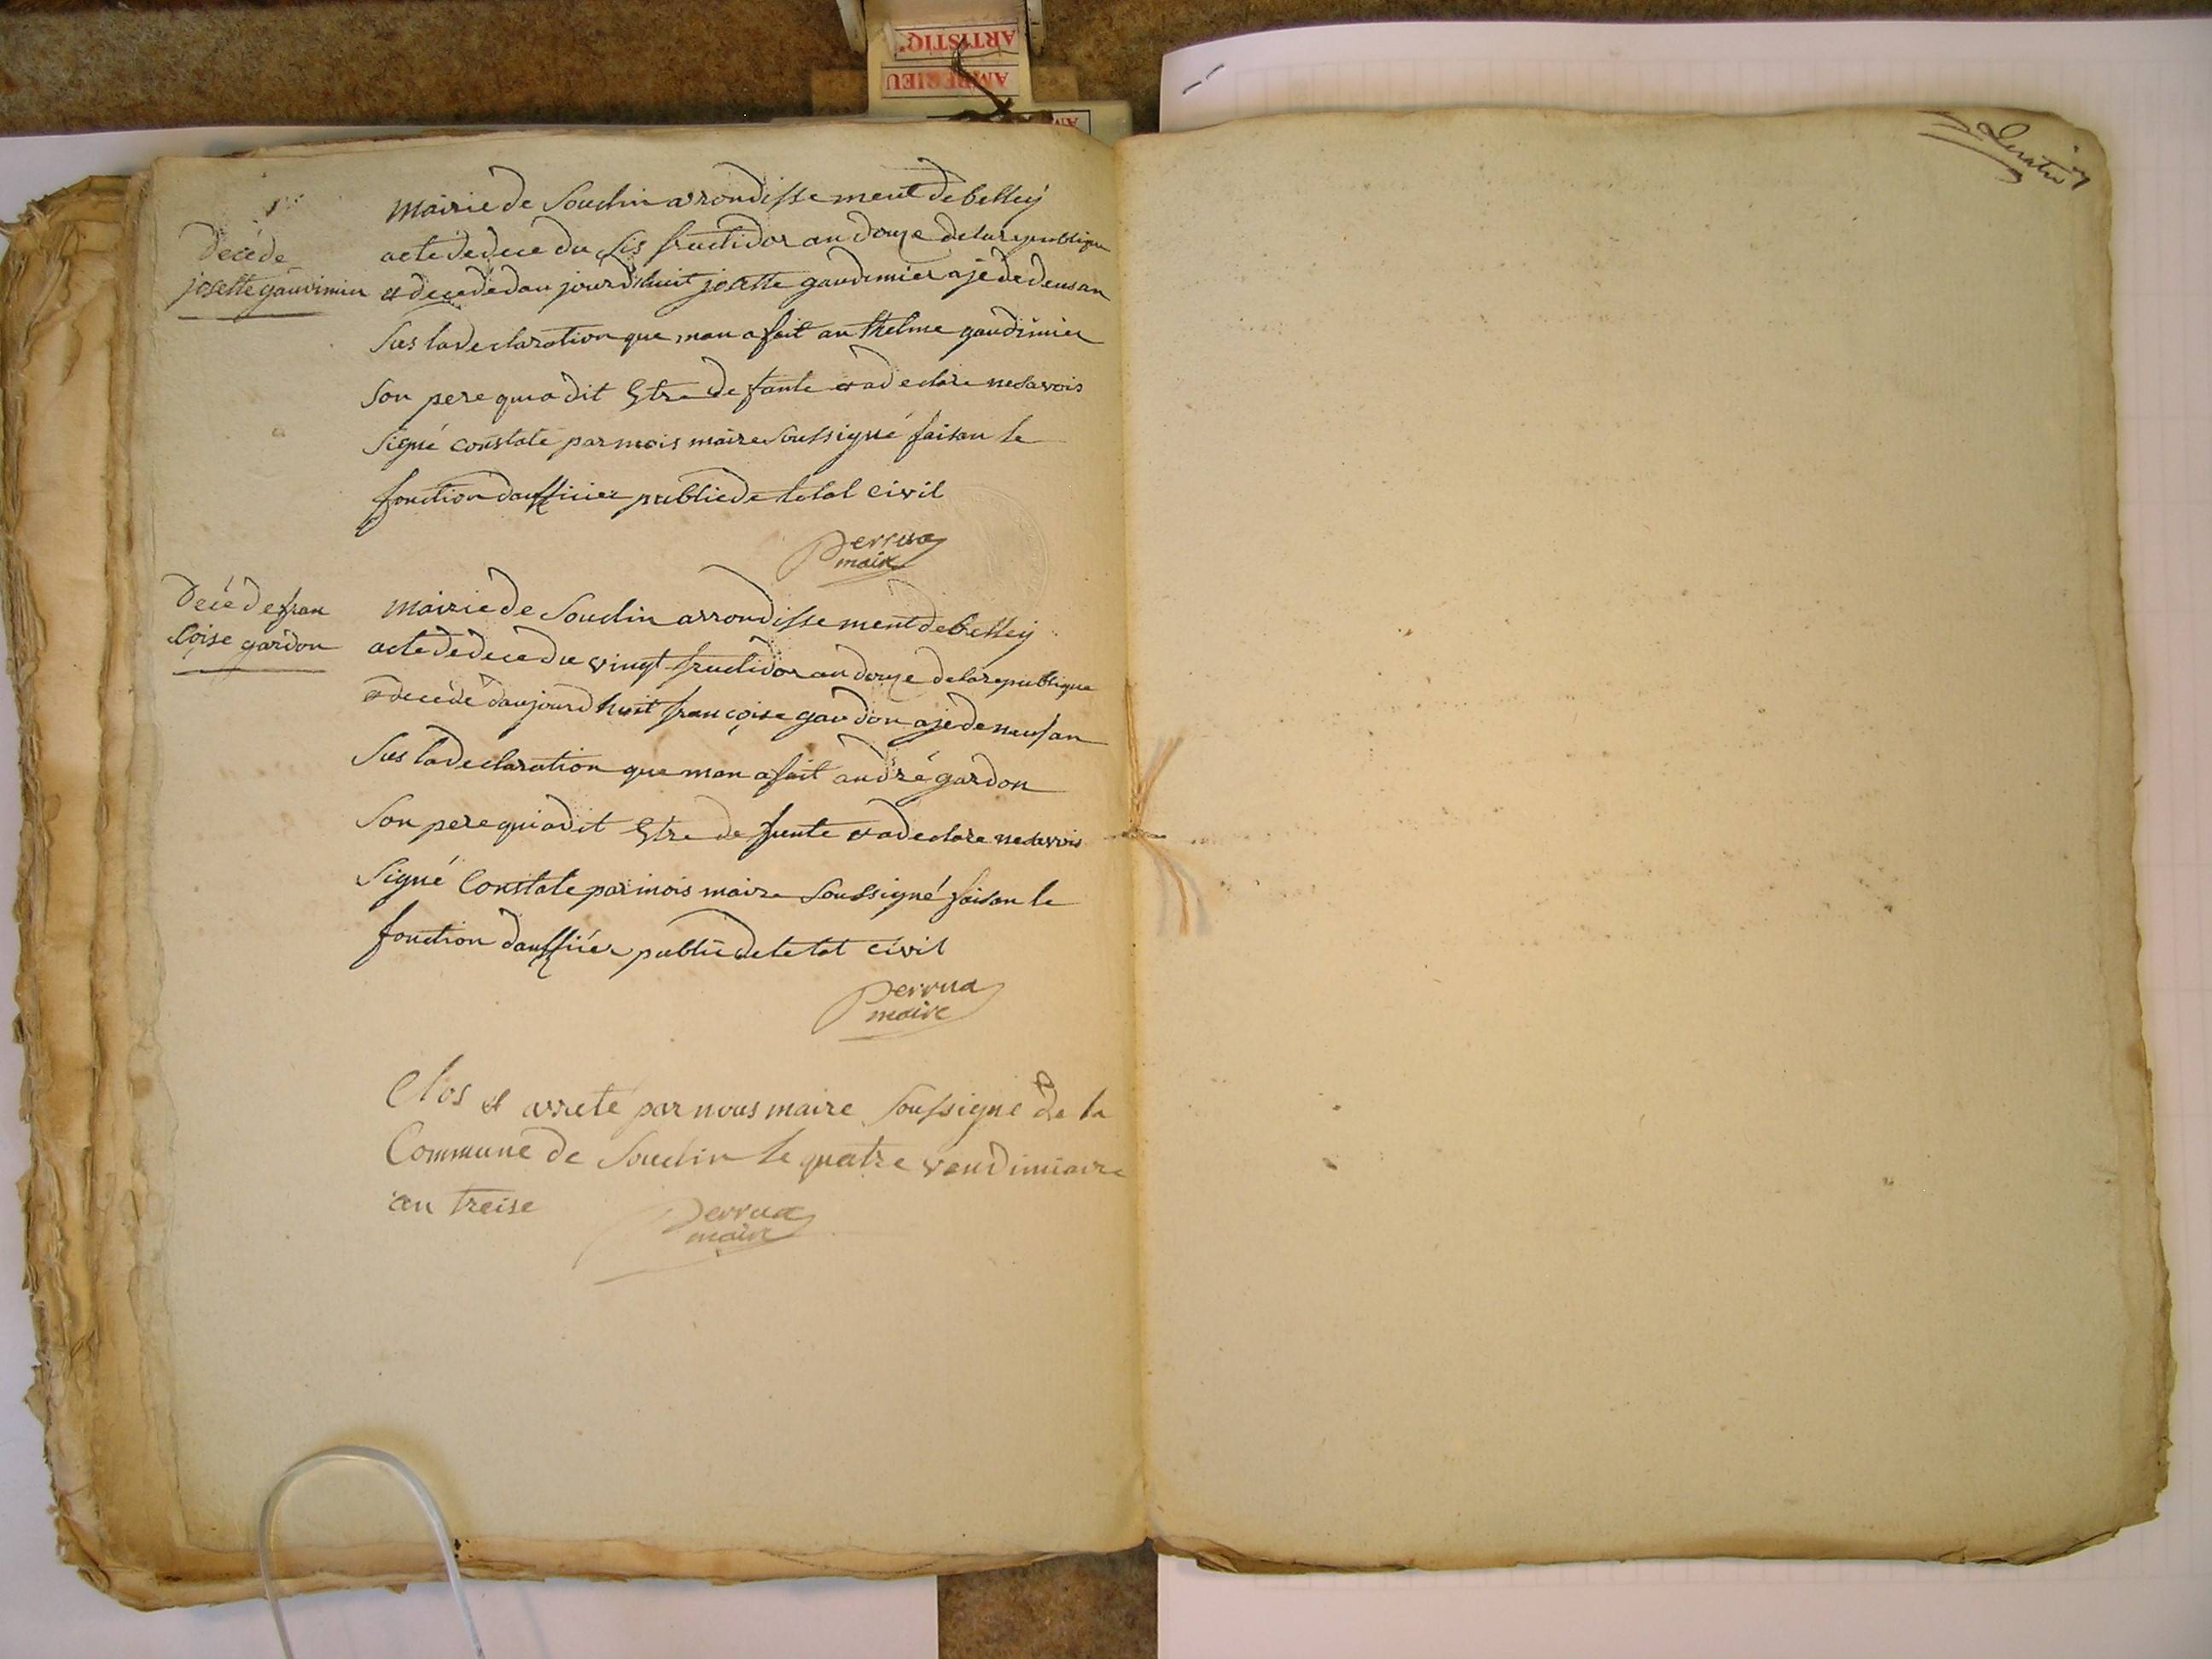 ARTISTIQ'
AMBERIEU
mairie de Souclin arrondissement de belley
acte de dece du sis fructidor an douze de la republique
Decé de
josette gaudimier
et decedé daujourdhuit josette gaudimier ajé de deus an
sus la declaration que man a fait anthelme gaudimier
son pere qui a dit Estre de fante et a declare ne savois
signé constaté par mois maire soussigné faisan le
fonction daufficier public de letat civil
Perrua
maire
Decé de fran
coise gardon
mairie de Souclin arrondissement de belley
acte de dece du vingt fructidor an douze de la republique
et decede daujourdhuit françoise gardon ajé de neuf an
sus la declaration que man a fait andré gardon
son pere qui a dit Estre de funte et a declare ne savois
signé Constate par mois maire soussigné faisan le
fonction daufficier public de letat civil
Perrua
maire
Clos et arreté par nous maire soussigné de la
Commune de Souclin le quatre vendimiaire
an treise
Perrua
maire